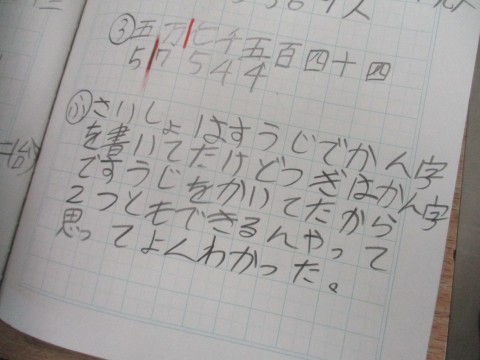 ③五万七千五百四十四
57544
㋫さいしょはすうじでかん字
を書いてたけどつぎはかん字
ですうじをかいてたから
2つともできるんやって
思ってよんわかった。